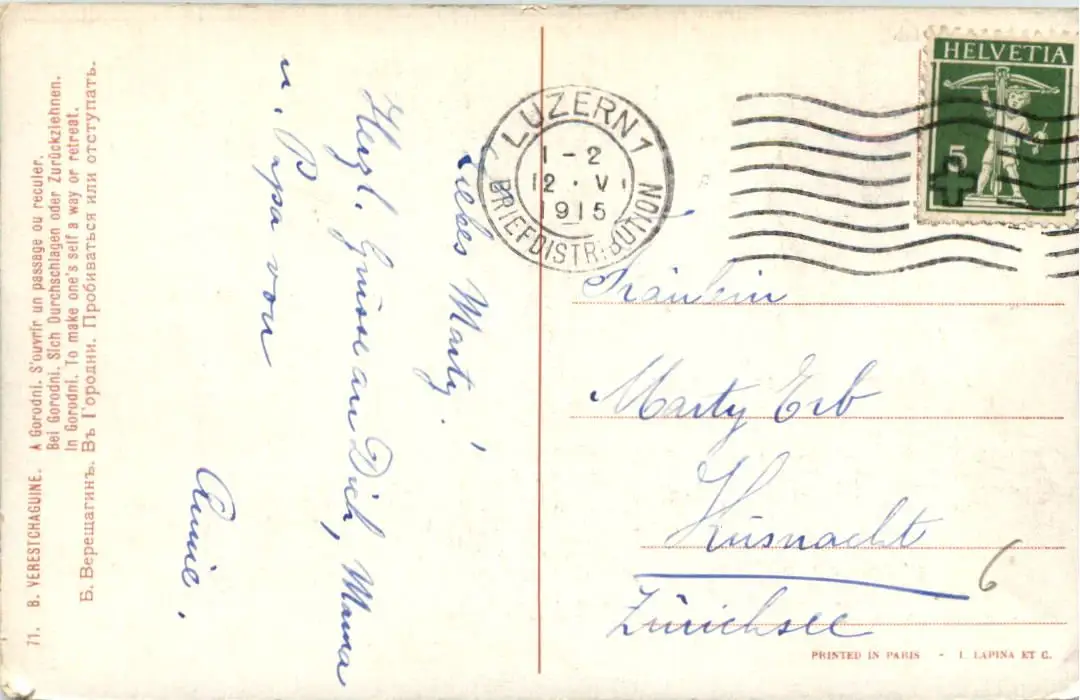 71. B. VERESTCHAGUINE. A Gorodni. S'ouvrir un passage ou reculer.
Bei Gorodni. Sich Durchschlagen oder Zurückziehnen.
In Gorodni. To make one's self a way or retreat.
Б. Верещагинъ. Въ Городни. Пробиваться или отступать.
Liebes Marty!
Herzl. Grüsse an Dich, Mama
u. Papa von
Annie.
LUZERN 1
1-2
12. V
1915
BRIEFDISTRIBUTION
HELVETIA
5
Fräulein
Marty Erb
Küsnacht
Zürichsee
6
PRINTED IN PARIS - I. LAPINA ET C.